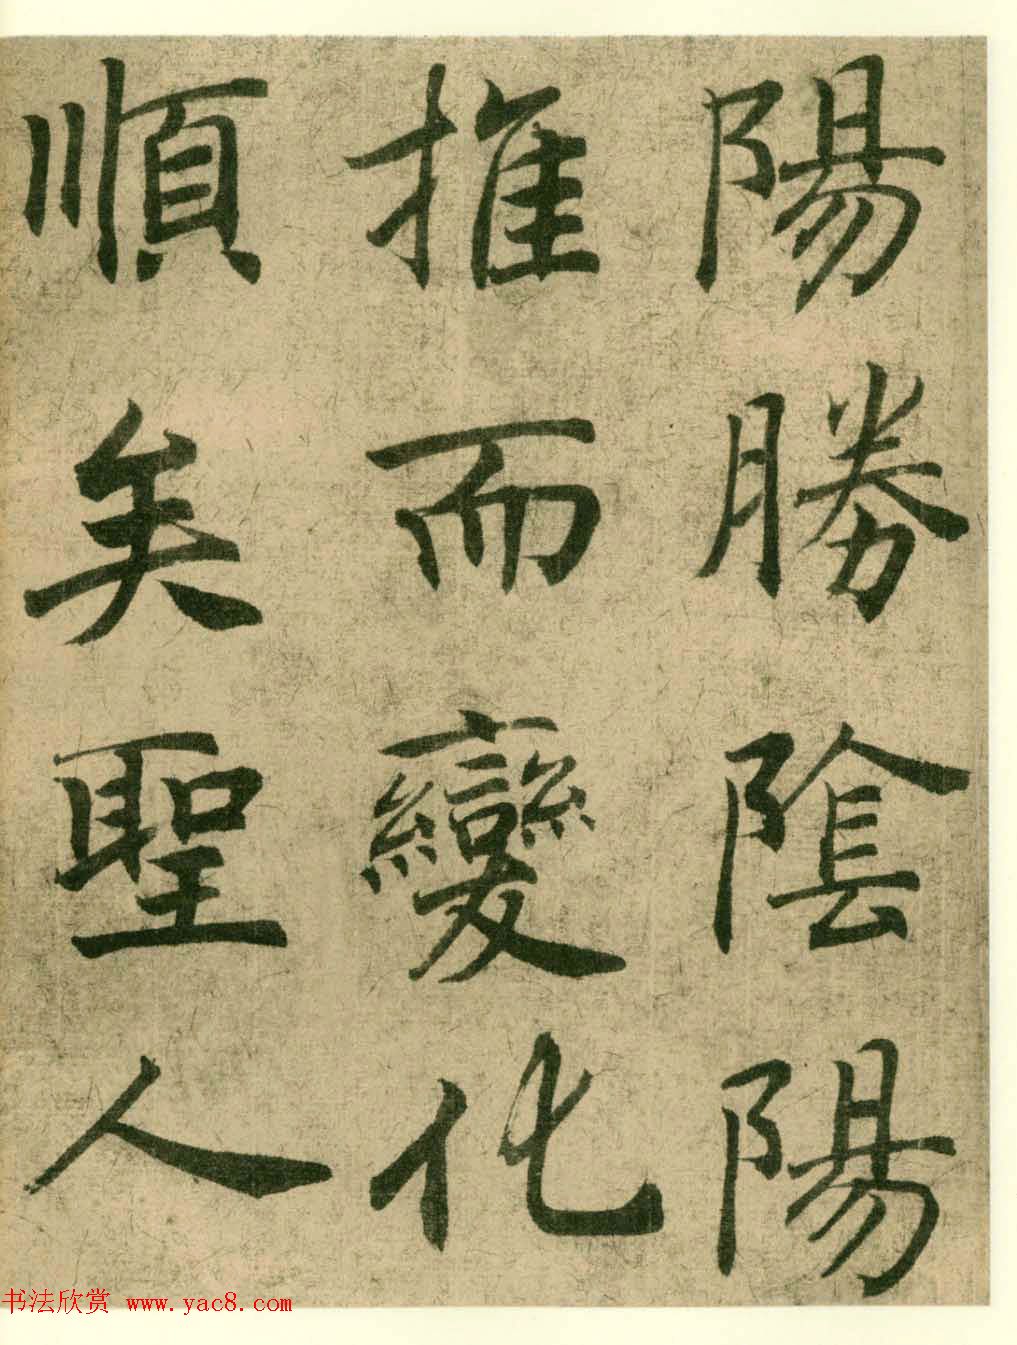 陽勝陰陽
推而變化
順矣聖人
书法欣赏 www.yac8.com